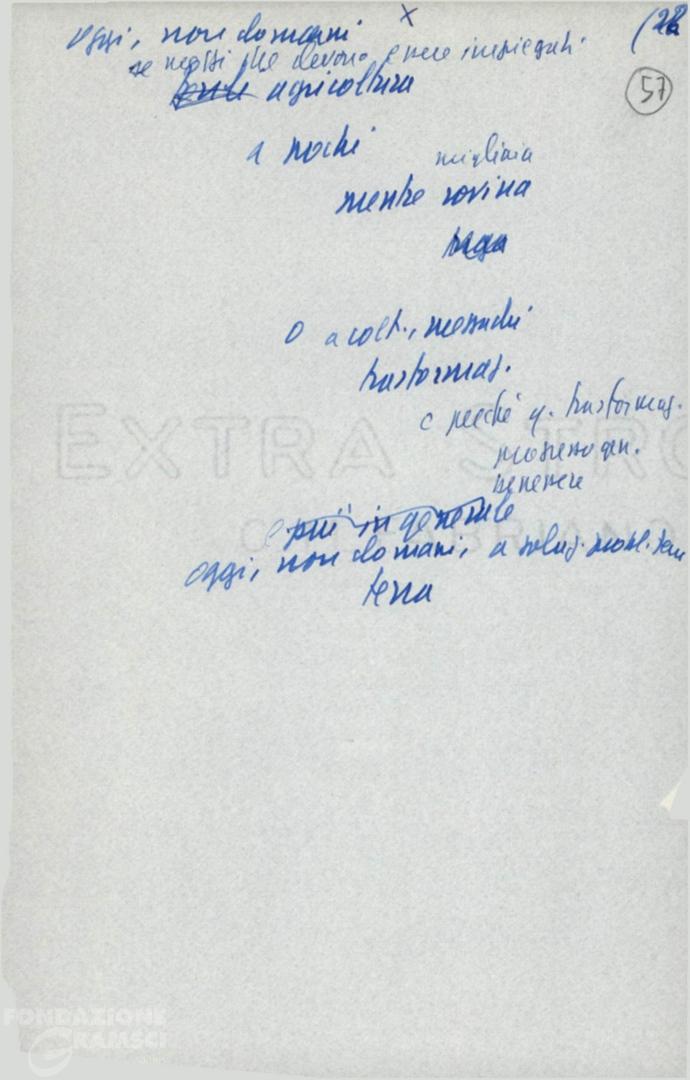 oggi, non domani x (28
se mezzi che devono essere impiegati (57)
agricoltura
a pochi migliaia
mentre rovina
o a colt., mezzadri
trasformaz.
e perché q. trasformaz.
progresso gen.
benessere
e più in generale
oggi, non domani, a soluz. probl.
terra
EXTRA STRO
FABRIANO
FONDAZIONE
GRAMSCI